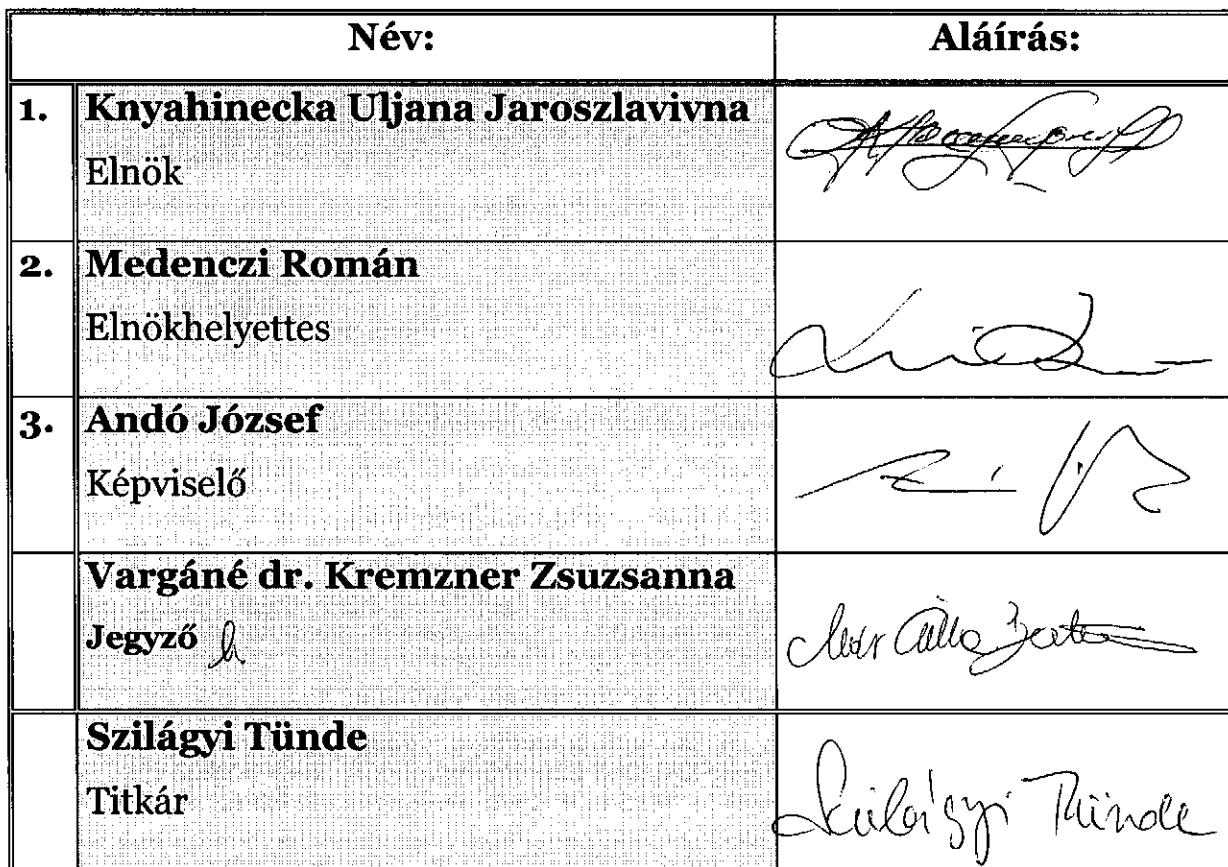 Név: Aláírás:
1. Knyahinecka Uljana Jaroszlavivna
Elnök
2. Medenczi Román
Elnökhelyettes
3. Andó József
Képviselő
Vargáné dr. Kremzner Zsuzsanna
Jegyző h
Szilágyi Tünde
Titkár
Szilágyi Tünde